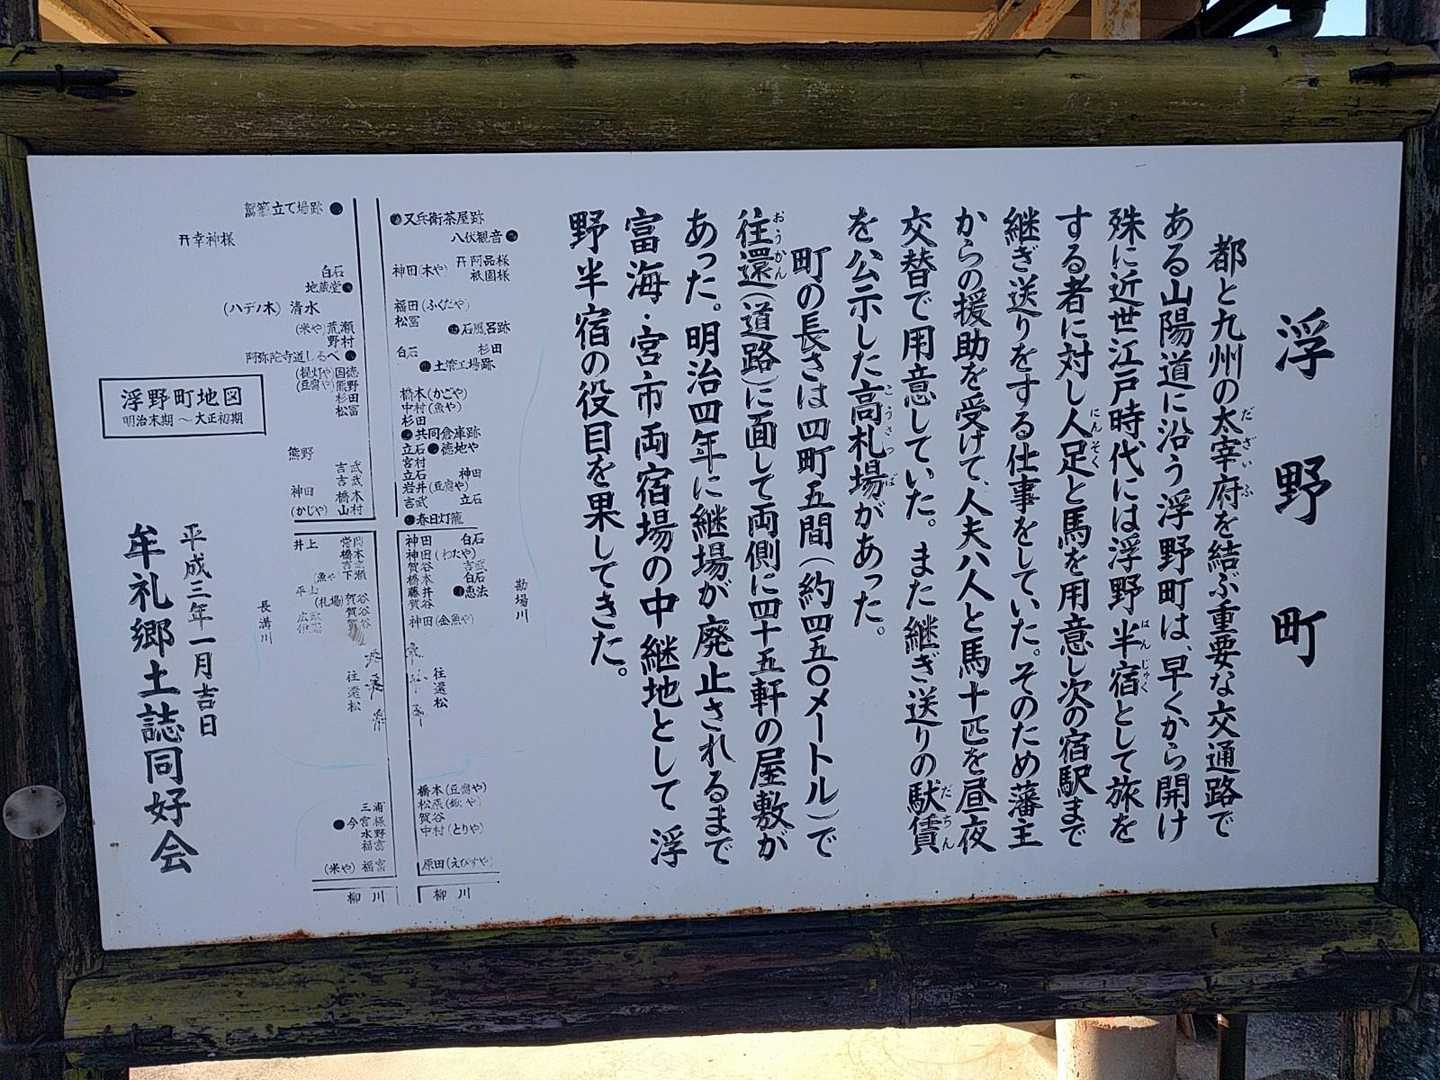 浮野町
都と九州の太宰府を結ぶ重要な交通路で
ある山陽道に沿う浮野町は、早くから開け
殊に近世江戸時代には浮野半宿として旅を
する者に対し人足と馬を用意し次の宿駅まで
継ぎ送りをする仕事をしていた。そのため藩主
からの援助を受けて、人夫八人と馬十匹を昼夜
交替で用意していた。また継ぎ送りの駄賃
を公示した高札場があった。
町の長さは四町五間(約四五〇メートル)で
往還(道路)に面して両側に四十五軒の屋敷が
あった。明治四年に継場が廃止されるまで
富海・宮市両宿場の中継地として浮
野半宿の役目を果してきた。
だざいふ
にんそく
はんじゅく
だちん
こうさつば
おうかん
又兵衛茶屋跡
八伏観音
神田(木や)
祇園様
福田(ふくだや)
松冨
石風呂跡
白石
杉田
土管工場跡
橋本(かごや)
中村(魚や)
杉田
共同倉庫跡
立石
徳地や
宮村
立石
神田
岩井(豆腐や)
吉武
立石
春日灯籠
神田
白石
神田(わたや)
賀谷
吉武
橋本
白石
藤井
恵法
賀谷
神田(金魚や)
勘場川
往還松
橋本(豆腐や)
賀谷
中村(とりや)
原田(えびすや)
柳川
駕籠立て場跡
幸神様
白石
地蔵堂
(ハデノ木) 清水
(米や)荒瀬
野村
阿弥陀寺道しるべ
(提灯や)国徳
(豆腐や)熊野
杉田
松冨
熊野
吉武
吉武
神田
橋木
(かじや)
山村
井上
橋本
(魚や
下瀬
(札場)賀谷
賀谷
賀谷
長溝川
往還松
三浦
今宮様
水野
福冨
(米や)
福冨
柳川
浮野町地図
明治末期〜大正初期
平成三年一月吉日
牟礼郷土誌同好会